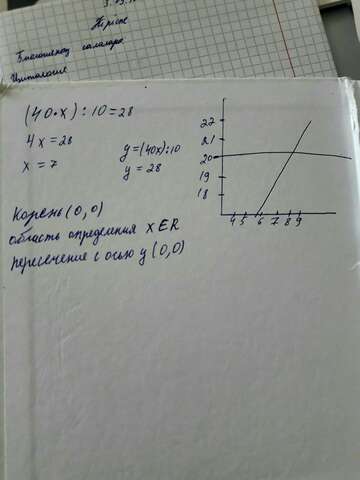 Негізгі
(40·x):10=28
4x=28
x=7
y=(40x):10
y=28
22
21
20
19
18
4 5 6 7 8 9
Корень (0,0)
область определения x∈R
пересечение с осью y (0,0)